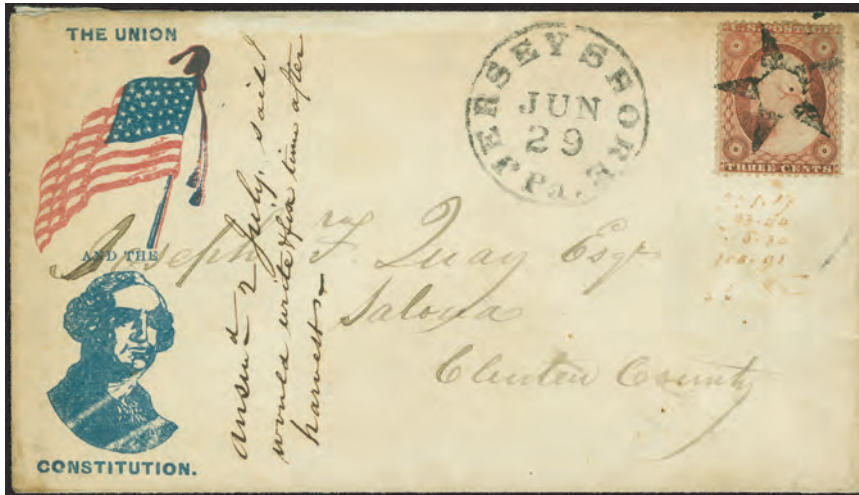 THE UNION
AND THE
CONSTITUTION.
ansd 2 July, said I
would write & fix time after
harvest-
JERSEY SHORE
JUN
29
Pa.
U.S. POSTAGE
THREE CENTS
Joseph F. Quay Esqr
Salona
Clinton County